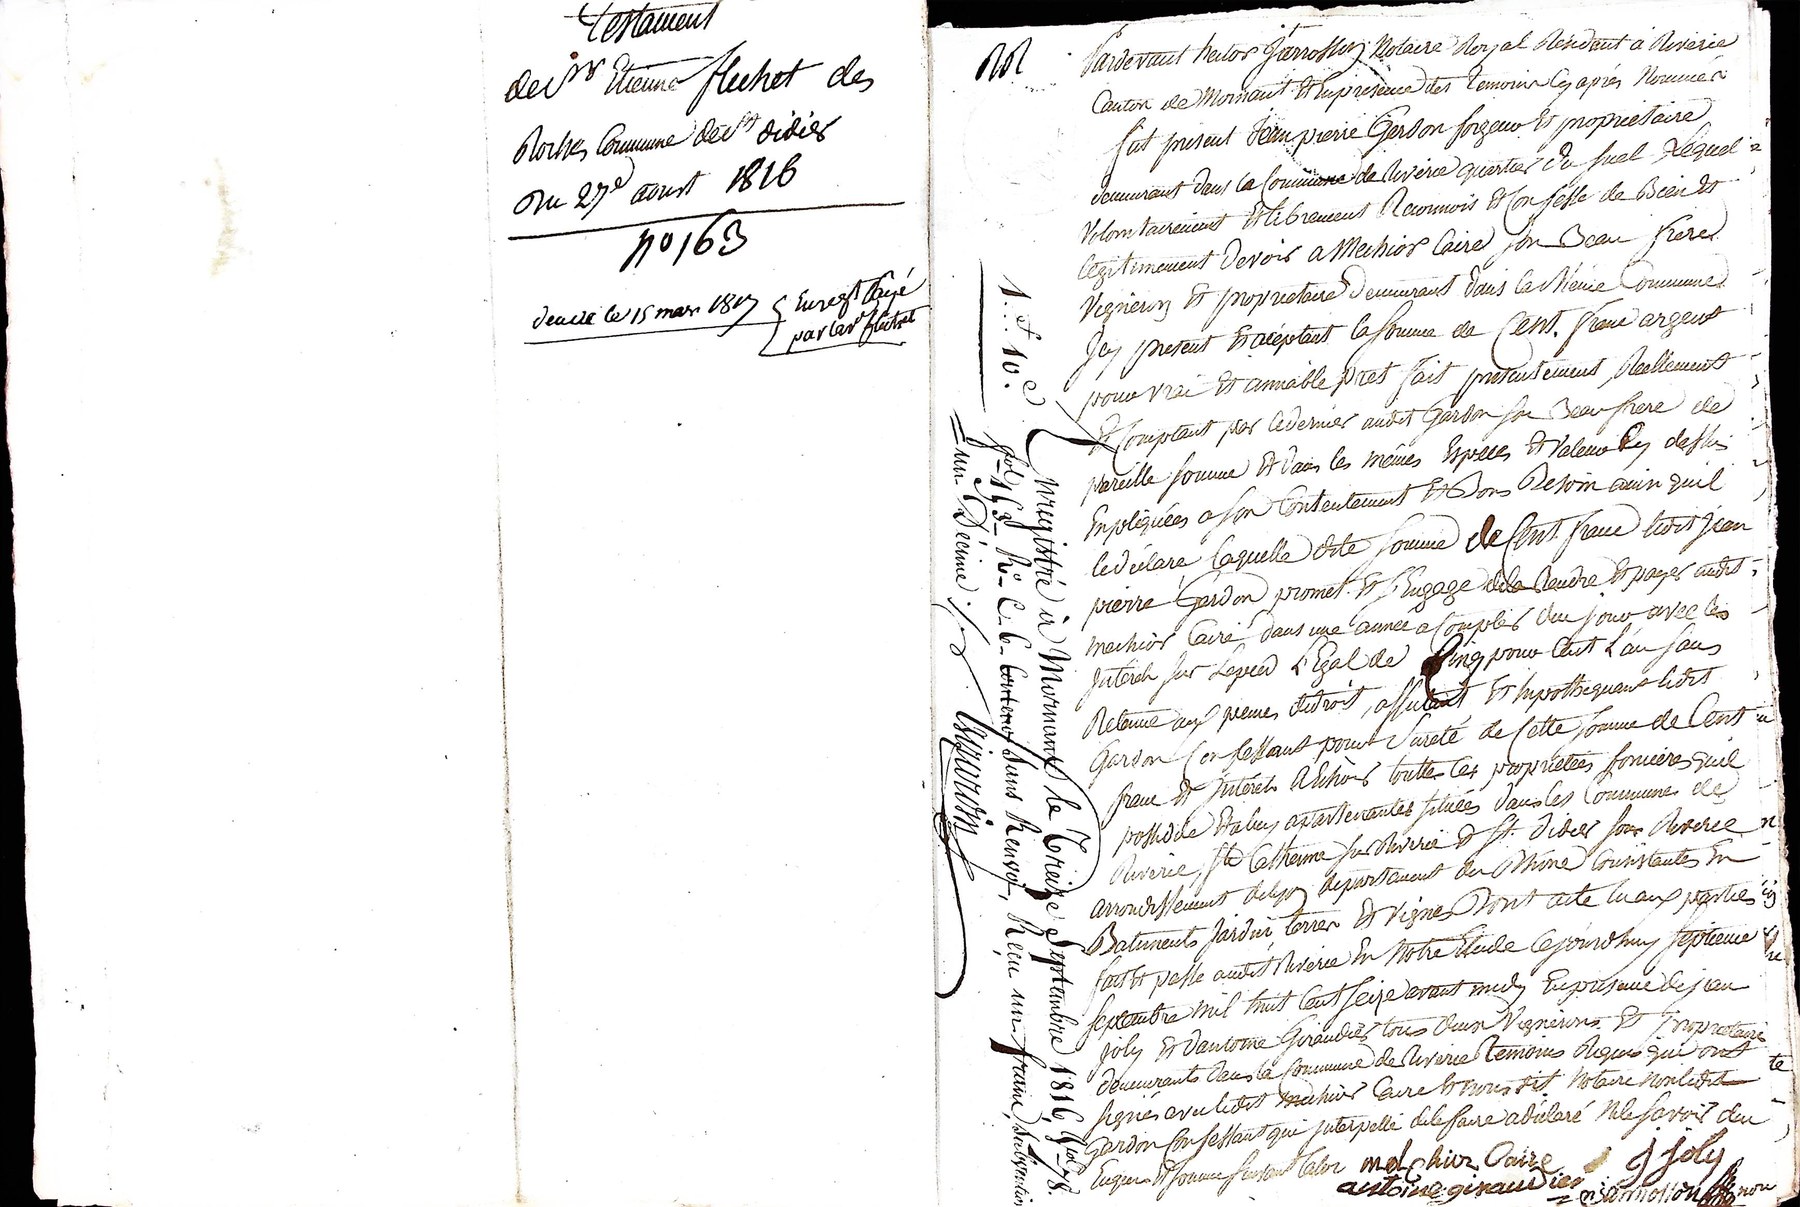 Testament
de Sr Etienne fluchet des
Roches Commune de St didier
Du 27e aoust 1816
no 163
delivré le 15 mars 1817
Enregt Payé
par le Sr fluchet
Pardevant hector Jarrosson Notaire Royal Résidant a Riverie
Canton de Mornant Et En présence des Temoins Cy après Nommés
fut présent Jean pierre Gardon forgeur Et propriétaire
demeurant dans la Commune de Riverie quartier du fuel Lequel
Volontairement Et librement Reconnois Et Confesse de Bien Et
Légitimement devoir a Mechior Caire son Beau frere
Vigneron Et propriétaire demeurant dans la Même Commune
Icy présent Et acéptant la Somme de Cent franc argent
pour vrai Et aimable prêt fait présentement Réellement
Et Comptant par Cedernier audit Gardon son Beau frere de
pareille somme Et dans les mêmes Espèces Et Valeur Cy dessus
Expliquées a son Contentement Et Bons Besoin ainsi quil
le déclare laquelle dite somme de Cent franc ledit Jean
pierre Gardon promet Et s'Engage de la Rendre Et payer audit
mechior Caire dans une année a Compter du jour avec les
Intérêts sur Lepied L'Egal de Cinq pour Cent L'an sans
Retenue aux peines de droit, assurant Et hypothéquant ledit
Gardon Confessant pour Sureté de Cette somme de Cent
franc Et Intérêts a Echoir toutes les propriétées foncieres quil
possède Et a luy apartenantes situées dans les Communes de
Riverie, Ste Catherine sur Riverie Et St. Didier sous Riverie
arrondissement de Lyon département du Rhône Consistantes En
Batiments Jardin terres Et vignes Dont acte lu aux parties
fait Et passé audit Riverie En Notre Etude Cejourdhuy septieme
septembre mil huit Cent seize avant midy En présence de jean
joly Et d'antoine Giraudier tous deux Vignerons Et propriétaires
demeurants dans la Commune de Riverie Temoins Requis qui ont
signés avec ledit mechior Caire Et nous dit Notaire Non ledit
Gardon Confessant qui Interpellé de le faire a déclaré Ne le savoir de
Enquis Et somme suivant la loi
melchior Caire
j joly
antoine giraudier
Jarrosson
Enregistré à Mornant le Treize Septembre 1816 fol. 78.
fol 163 Ro C. 6. Contenant sans Renvoi, Reçu un franc, subvention
un Décime.
1 f 10 c